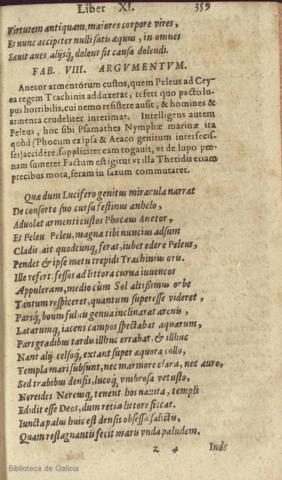 Liber XI. 359
Virtutem antiquam, maiores corpore vires,
Et nunc accipiter nulli satis æquus, in omnes
Sæuit aues alijsq́, dolens fit causa dolendi.
FAB. VIII. ARGVMENTVM.
Anetor armentorum custos, quem Peleus ad Cey-
ca regem Trachinis adduxerat, refert quo pacto lu-
pus horribilis, cui nemo resistere ausit, & homines &
armenta crudeliter interimat. Intelligens autem
Peleus, hoc sibi Psamathes Nymphæ marinæ ira
quòd (Phocum ex ipsa & Aeaco genitum interfecis-
set) accidere, suppliciter eam rogauit, vt de lupo pœ-
nam sumeret Factum est igitur vt illa Thetidis etiam
precibus mota, feram in saxum commutaret.
Quæ dum Lucifero genitus miracula narrat
De consorte suo cursu festinus anhelo,
Aduolat armenti custos Phocæus Anetor,
Et Peleu Peleu, magnæ tibi nuncius adsum
Cladis, ait quodcunq́, ferat, iubet edere Peleus,
Pendet & ipse metu trepidi Trachinius oris.
Ille refert: fessos ad littora curua iuuencos
Appuleram, medio cùm Sol altissimus orbe
Tantum respiceret, quantum superesse videret,
Parsq́, boum fuluis genua inclinarat arenis,
Latarumq́, iacens campos spectabat aquarum,
Pars gradibus tardis illhuc errabat, & illhuc
Nant alij celsoq́, extant super æquora collo,
Templa mari subsunt, nec marmore clara, nec auro,
Sed trabibus densis, lucoq́ vmbrosa vetusto,
Nereides Nereusq́, tenent hos nauita, templi
Edidit esse Deos, dum retia littore siccat.
Iuncta palus huic est densis obsessa salictis,
Quam restagnantis fecit maris vnda paludem.
Z 4 Inde
Biblioteca de Galicia